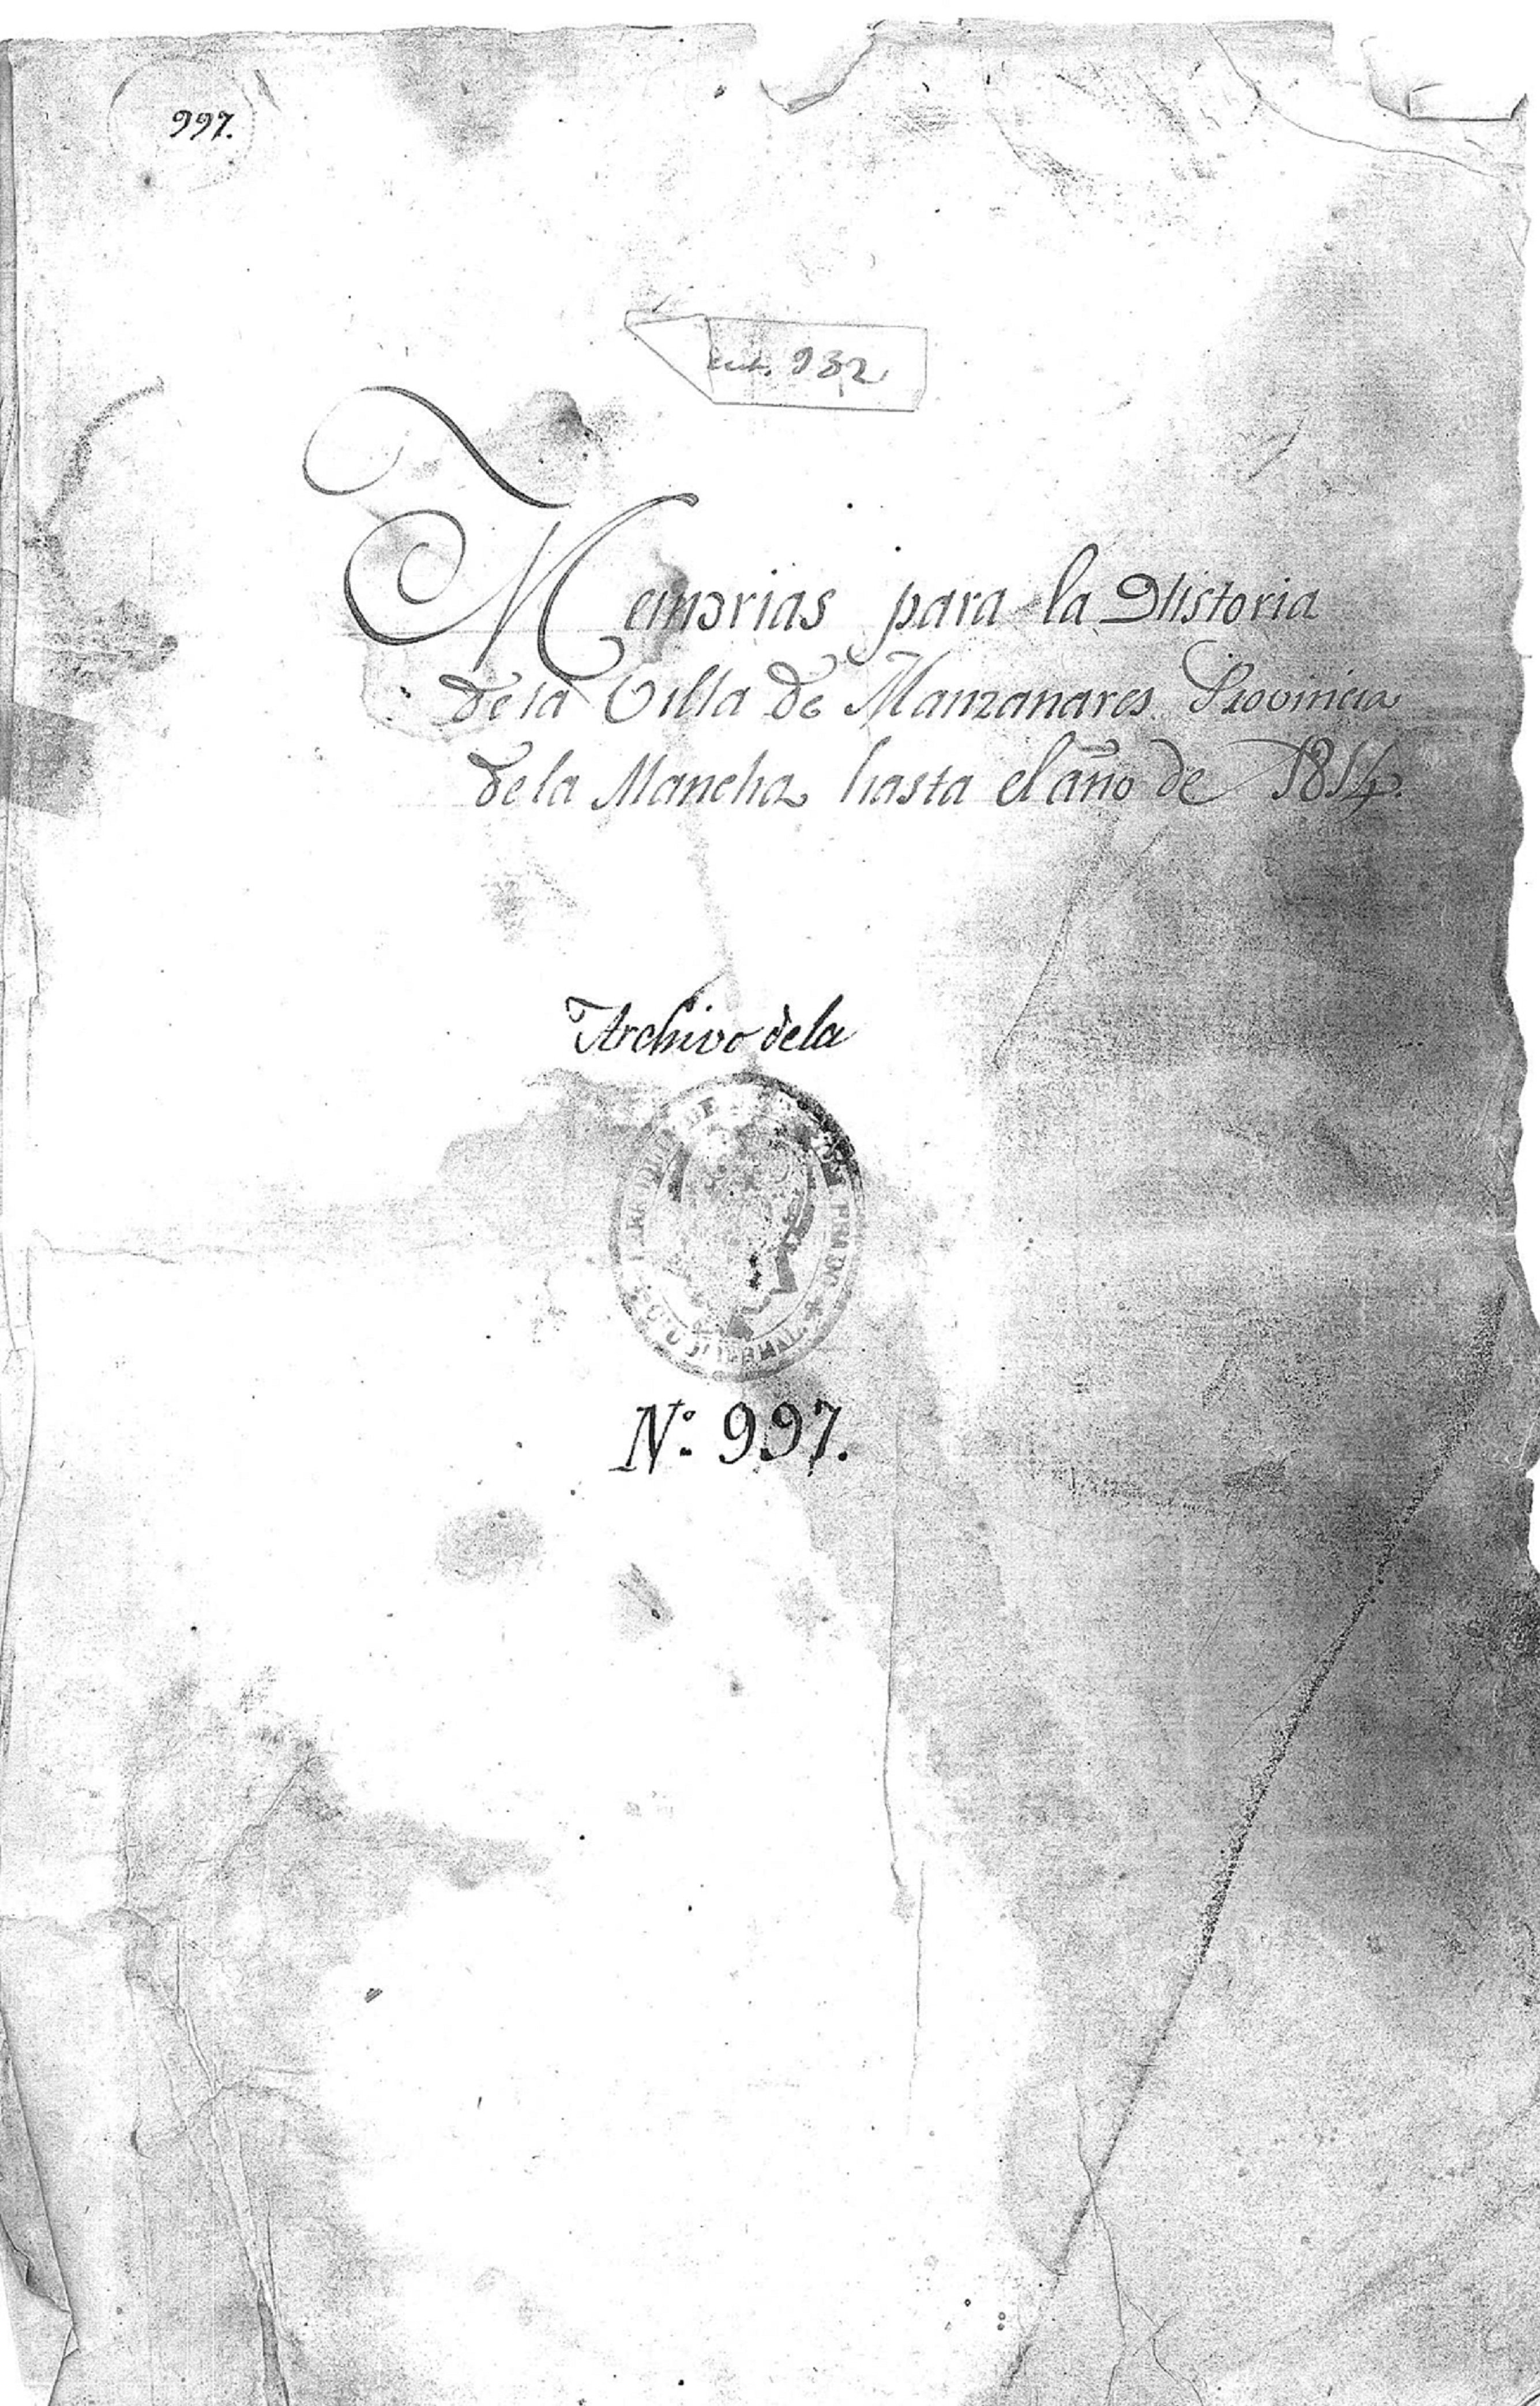 997.
932
Memorias para la Historia
de la Villa de Manzanares Provincia
de la Mancha hasta el año de 1814.
Archivo de la
N.º 997.